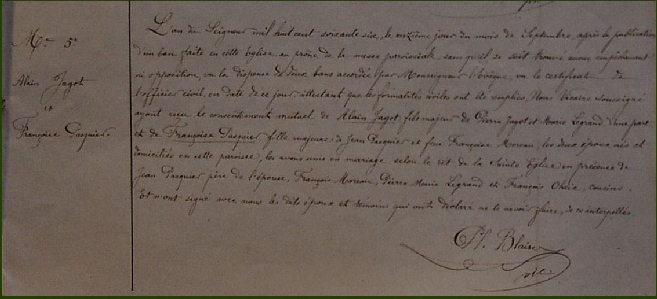 Mge 5e
Alain Jagot
et
Françoise Pasquier
L'an du Seigneur mil huit cent soixante six, le onzième jour du mois de Septembre, après la publication
d'un ban faite en cette Eglise au prône de la messe paroissiale, sans qu'il se soit trouvé aucun empêchement
ni opposition, vu la dispense de deux bans accordée par Monseigneur l'Evêque, vu le certificat de
l'officier civil, en date de ce jour, attestant que les formalités civiles ont été remplies, Nous Vicaire soussigné
ayant reçu le consentement mutuel de Alain Jagot, fils majeur de Pierre Jagot et Marie Legrand d'une part
et de Françoise Pasquier fille majeure de Jean Pasquier et feue Françoise Moreau, les deux époux nés et
domiciliés en cette paroisse, les avons unis en mariage selon le rit de la Sainte Eglise en présence de
Jean Pasquier père de l'épouse, François Moreau, Pierre Marie Legrand et François, cousins.
Et n'ont signé avec nous les dits époux et témoins qui ont déclaré ne le savoir faire, de ce interpellés.
Blaise
vic.